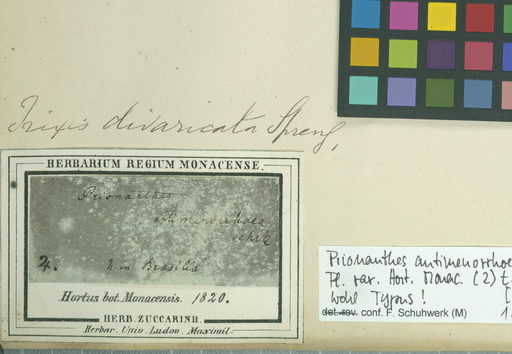 Trixis divaricata Spreng,
HERBARIUM REGIUM MONACENSE.
Prionanthes
antimenorrhoea
chik
4. ♄ in Brasilia
Hortus bot. Monacensis. 1820.
HERB. ZUCCARINII.
Herbar. Univ. Ludov. Maximil.
Prionanthes antimenorrhoe
Pl. rar. Hort. Monac. (2) t.
wohl Typus!
det. rev. conf. F. Schuhwerk (M)
1.